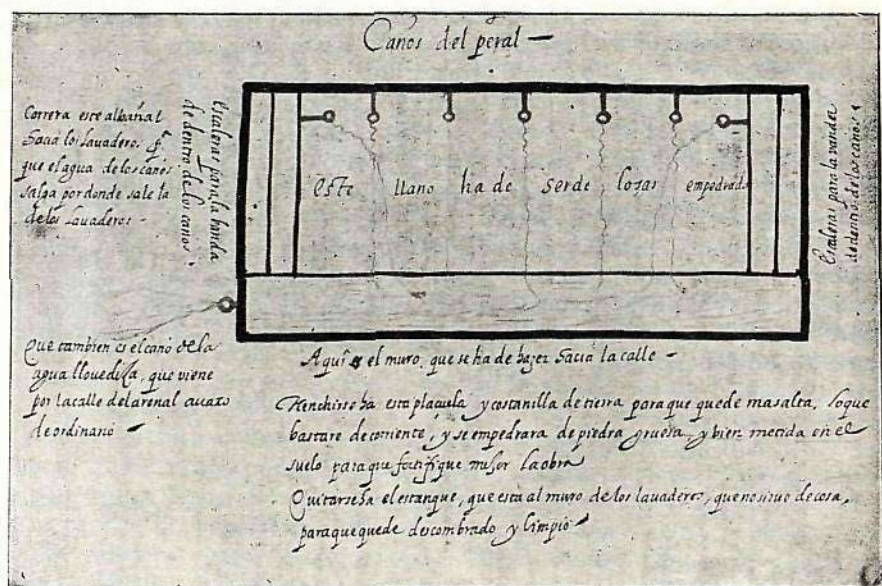 Caños del peral —
Correra este albañal
hacia los Lavaderos. pª
que el agua de los caños
salga por donde sale la
de los Lavaderos -
Escaleras para la banda
de dentro de los caños .
este llano ha de ser de losas empedrado
Escaleras para la vanda
de dentro de los caños .
Que tambien es el caño de la
agua llovediza, que viene
por la calle del arenal
de ordinario
Aqui es el muro, que se ha de hazer hacia la calle -
Henchirse ha esta plaçuela y costanilla de tierra para que quede mas alta, lo que
bastare de corriente, y se empedrara de piedra gruesa, y bien metida en el
suelo para que fortifique mejor La obra
Quitarse ha el estanque, que esta al muro de los lavaderos, que no sirve de cosa,
para que quede descombrado y limpio